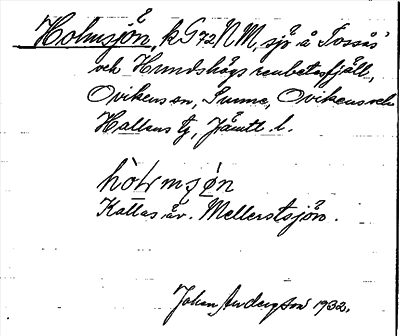 Holmsjön, k G 72 NM, sjö å Tossås
och Hundshögs renbetesfjäll,
Ovikens sn, Sunne, Ovikens och
Hallens tg, Jämtl. l.
hòɫmʃø̣n
Kallas äv. Mellerstsjön.
Johan Anderzson 1932.